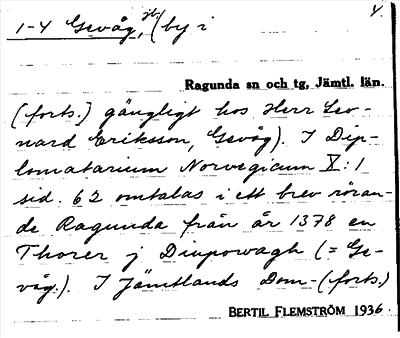 1-4 Gevåg, jb (by i
4.
Ragunda sn och tg, Jämtl. län.
(forts.) gängligt hos Herr Leo-
nard Eriksson, Gevåg). I Dip-
lomatarium Norvegicum X:1
sid. 62 omtalas i ett brev röran-
de Ragunda från år 1378 en
Thorer j Diupowagh (= Ge-
våg.). I Jämtlands Dom- (forts.)
BERTIL FLEMSTRÖM 1936